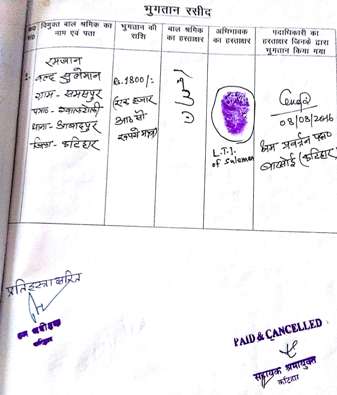 भुगतान रसीद
क्र०सं० विमुक्त बाल श्रमिक का नाम एवं पता
भुगतान की राशि
बाल श्रमिक का हस्ताक्षर
अभिभावक का हस्ताक्षर
पदाधिकारी का हस्ताक्षर जिनके द्वारा भुगतान किया गया
1. रमजान
वल्द सुलेमान
ग्राम - समसपुर
थाना - आबादपुर
जिला - कटिहार
Rs. 1800/-
(एक हजार
आठ सौ
रूपये मात्र)
L.T.I.
of Suleman
08/08/2016
श्रम प्रवर्तन पदा०
बारसोई (कटिहार)
प्रतिहस्ताक्षरित
श्रम अधीक्षक
कटिहार
PAID & CANCELLED
सहायक श्रमायुक्त
कटिहार